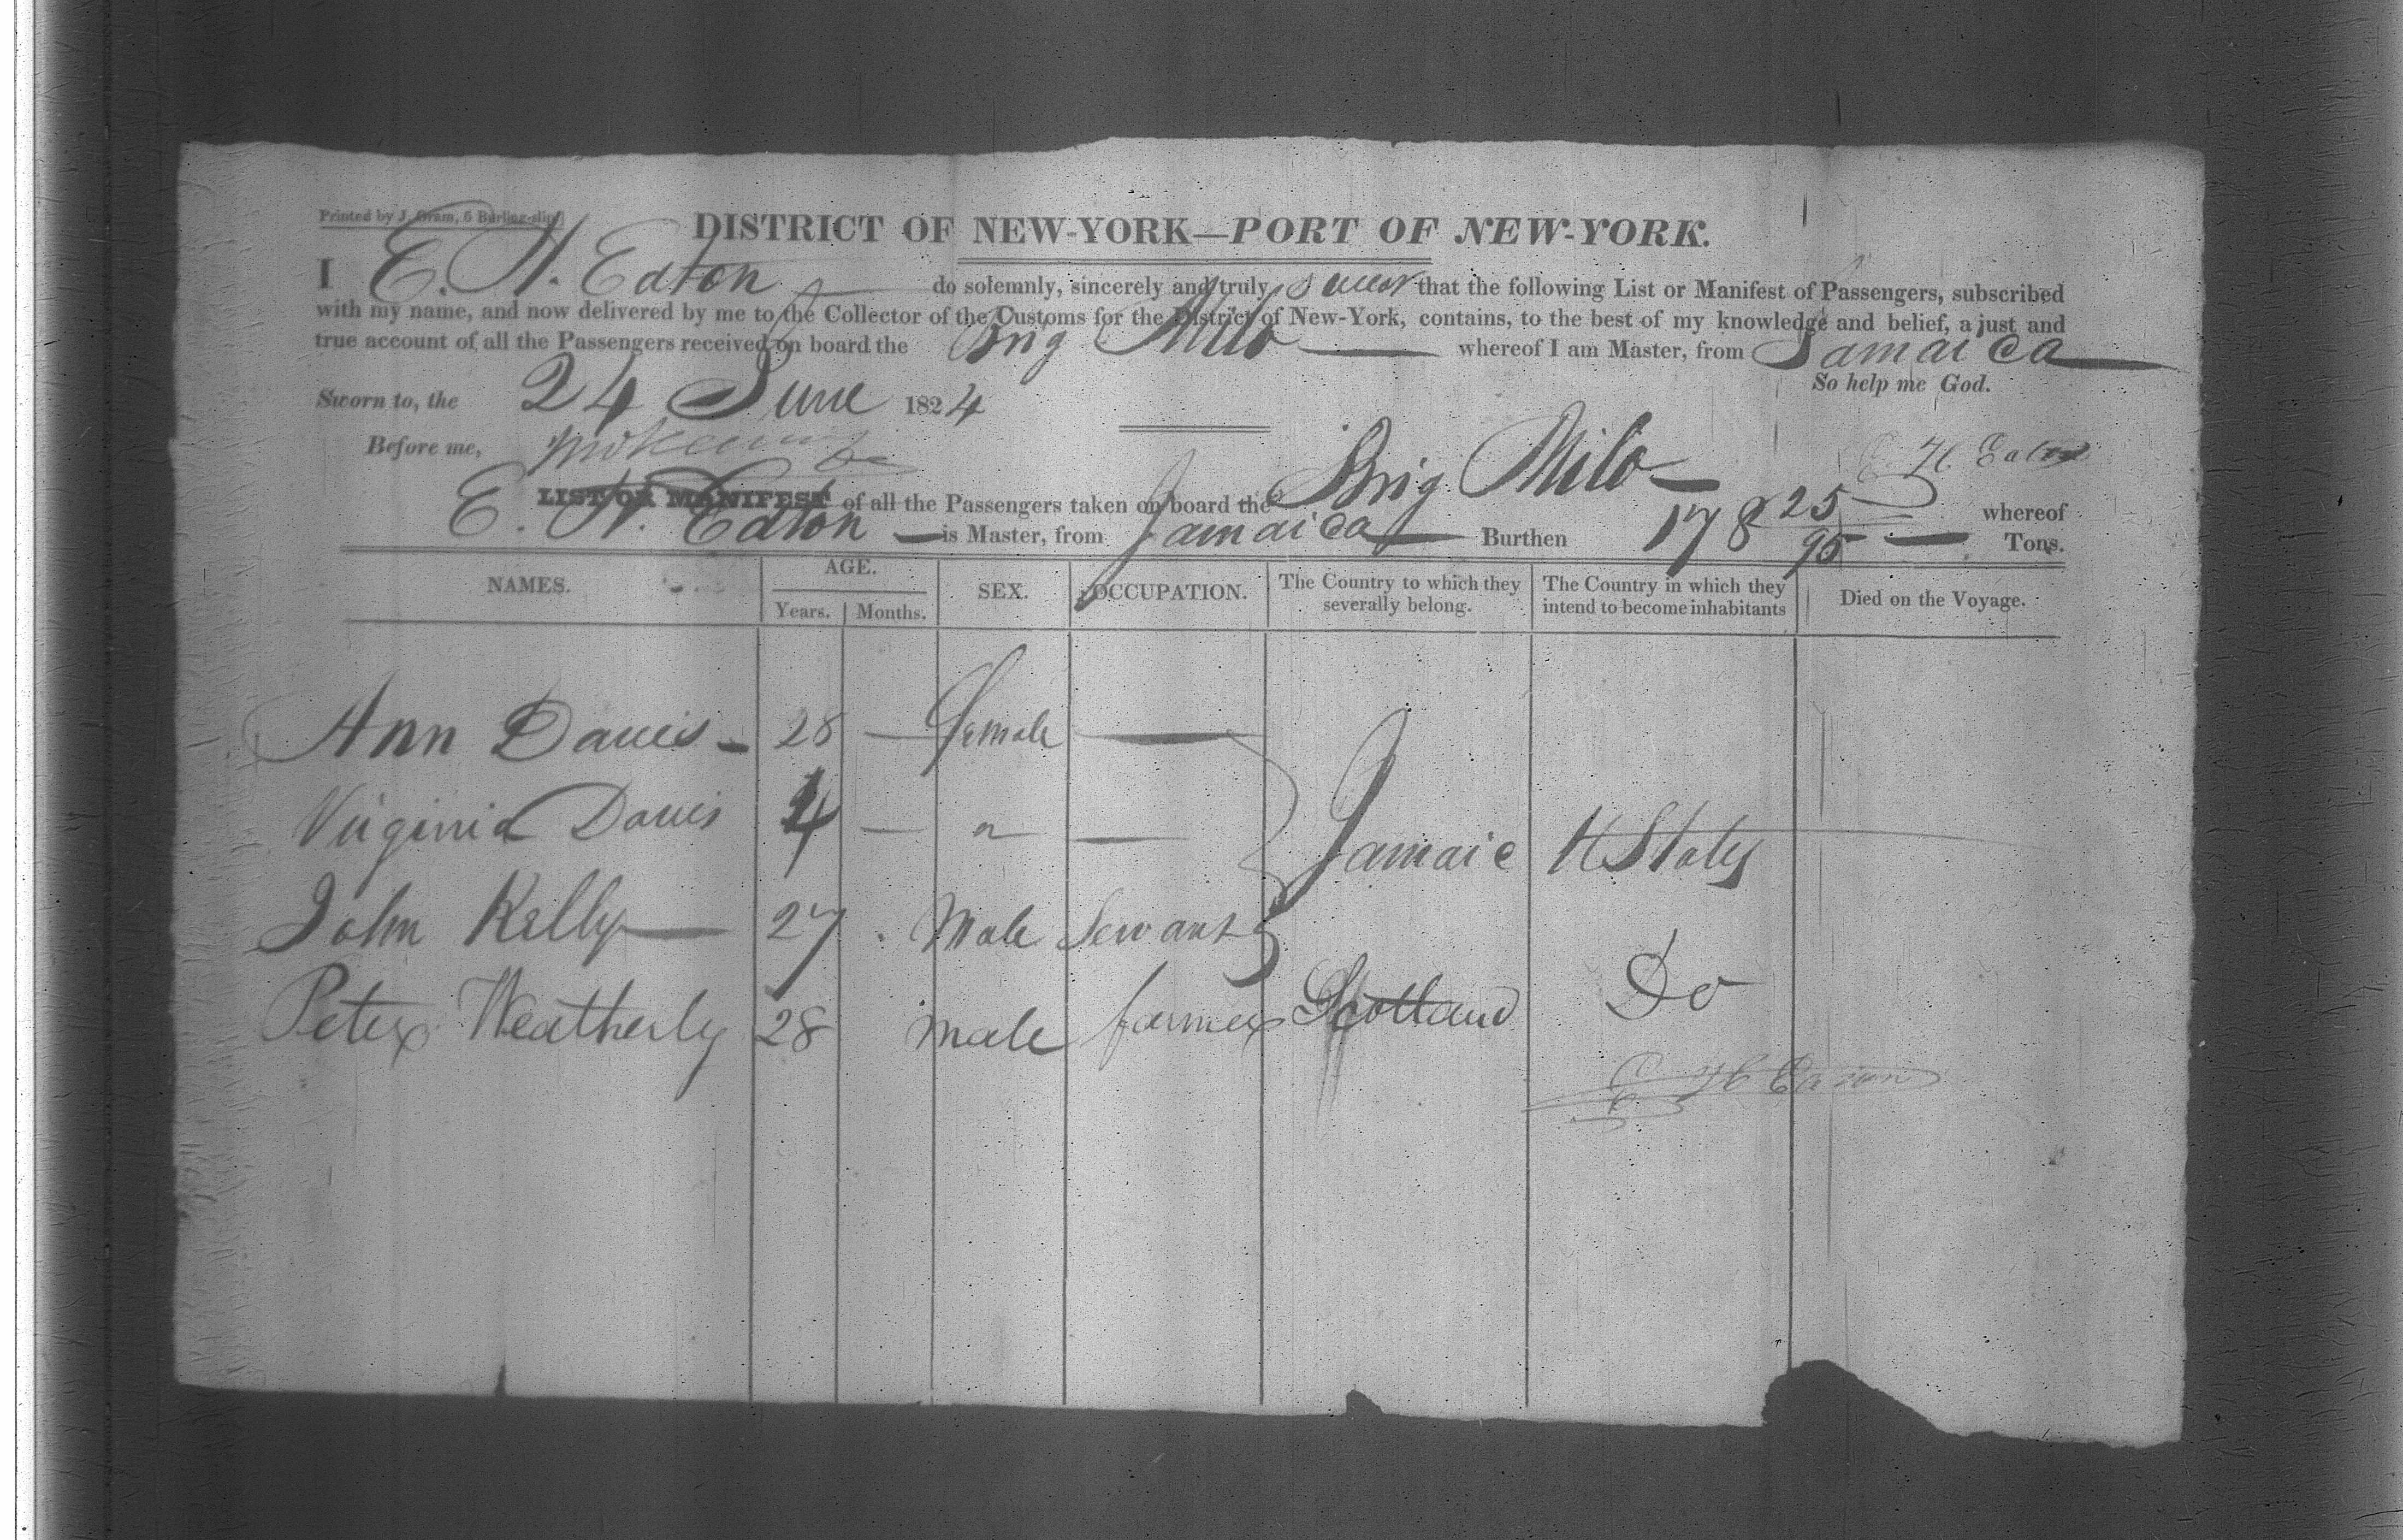 Printed by J. Gram, 6 Burling-slip]
DISTRICT OF NEW-YORK—PORT OF NEW-YORK.
I E. H. Eaton do solemnly, sincerely and truly swear that the following List or Manifest of Passengers, subscribed
with my name, and now delivered by me to the Collector of the Customs for the District of New-York, contains, to the best of my knowledge and belief, a just and
true account of all the Passengers received on board the Brig Milo — whereof I am Master, from Jamaica
So help me God.
Sworn to, the 24 June 1824
Before me,
E H Eaton
LIST OR MANIFEST of all the Passengers taken on board the Brig Milo — whereof
E. H. Eaton — is Master, from Jamaica Burthen 178 25/95 — Tons.
NAMES. AGE. Years. Months. SEX. OCCUPATION. The Country to which they severally belong. The Country in which they intend to become inhabitants Died on the Voyage.
Ann Davis — 28 — female —
Virginia Davis 4 — " — Jamaic U States
John Kelly — 27 Male Servant
Peter Weatherly 28 male farmer Scotland Do
E H Eaton